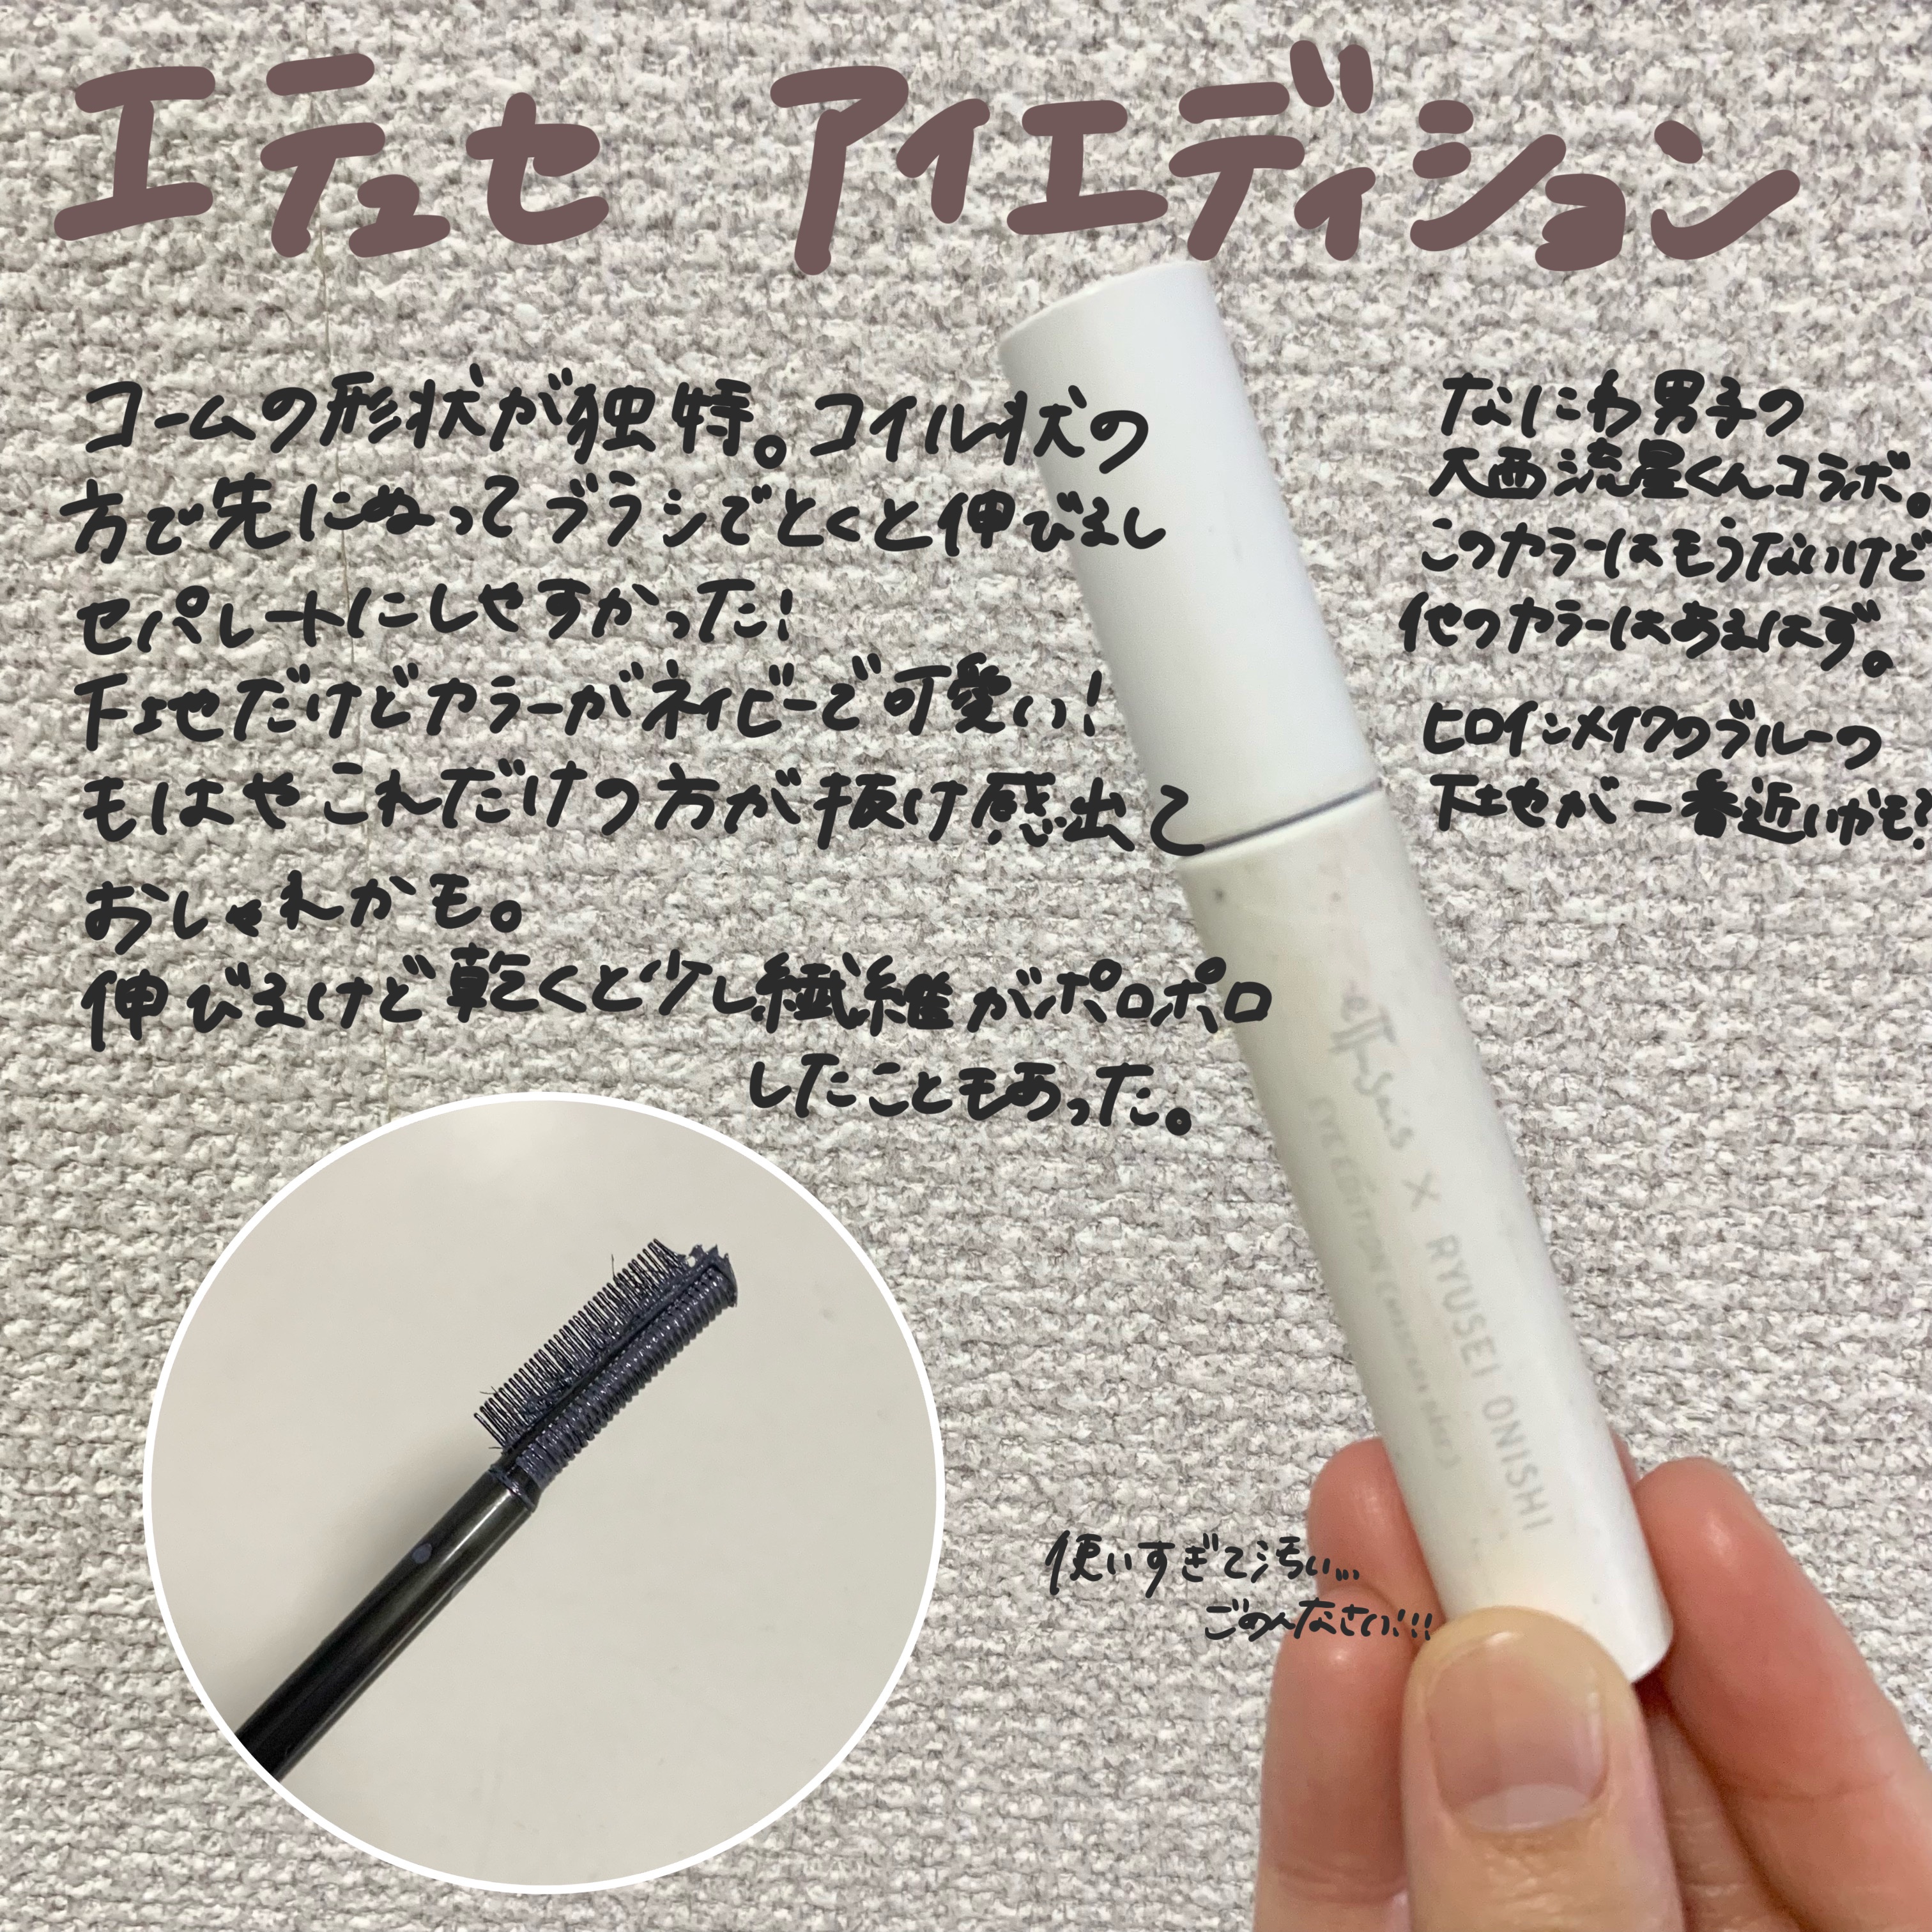 エテュセ アイエディション
コームの形状が独特。コイル状の
方で先にぬってブラシでとくと伸びるし
セパレートにしやすかった!
下地だけどカラーがネイビーで可愛い!
もはやこれだけの方が抜け感出て
おしゃれかも。
伸びるけど乾くと少し繊維がポロポロ
したこともあった。
なにわ男子の
大西流星くんコラボ。
このカラーはもうないけど
他のカラーはあるはず。
ヒロインメイクのブルーの
下地が一番近いかも?
ettusais × RYUSEI ONISHI
EYE EDITION (MASCARA BASE)
使いすぎて汚い...
ごめんなさい!!!